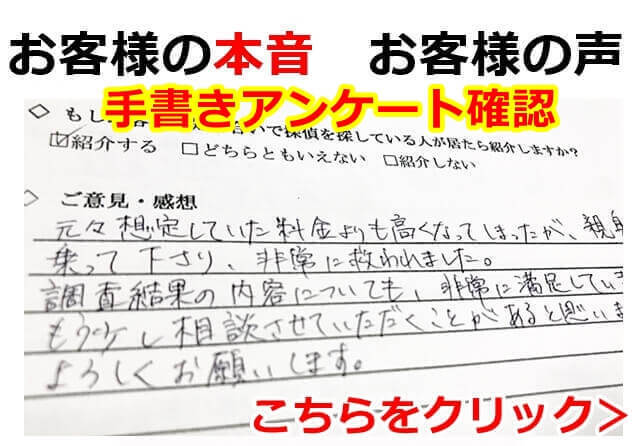 お客様の本音 お客様の声
手書きアンケート確認
◇ もし いで探偵を探している人が居たら紹介しますか?
☑紹介する □どちらともいえない □紹介しない
◇ ご意見・感想
元々想定していた料金よりも高くなってしまったが、親身
乗って下さり、非常に救われました。
調査結果の内容についても、非常に満足してい
もう少し相談させていただくことがあると思いま
よろしくお願いします。
こちらをクリック>